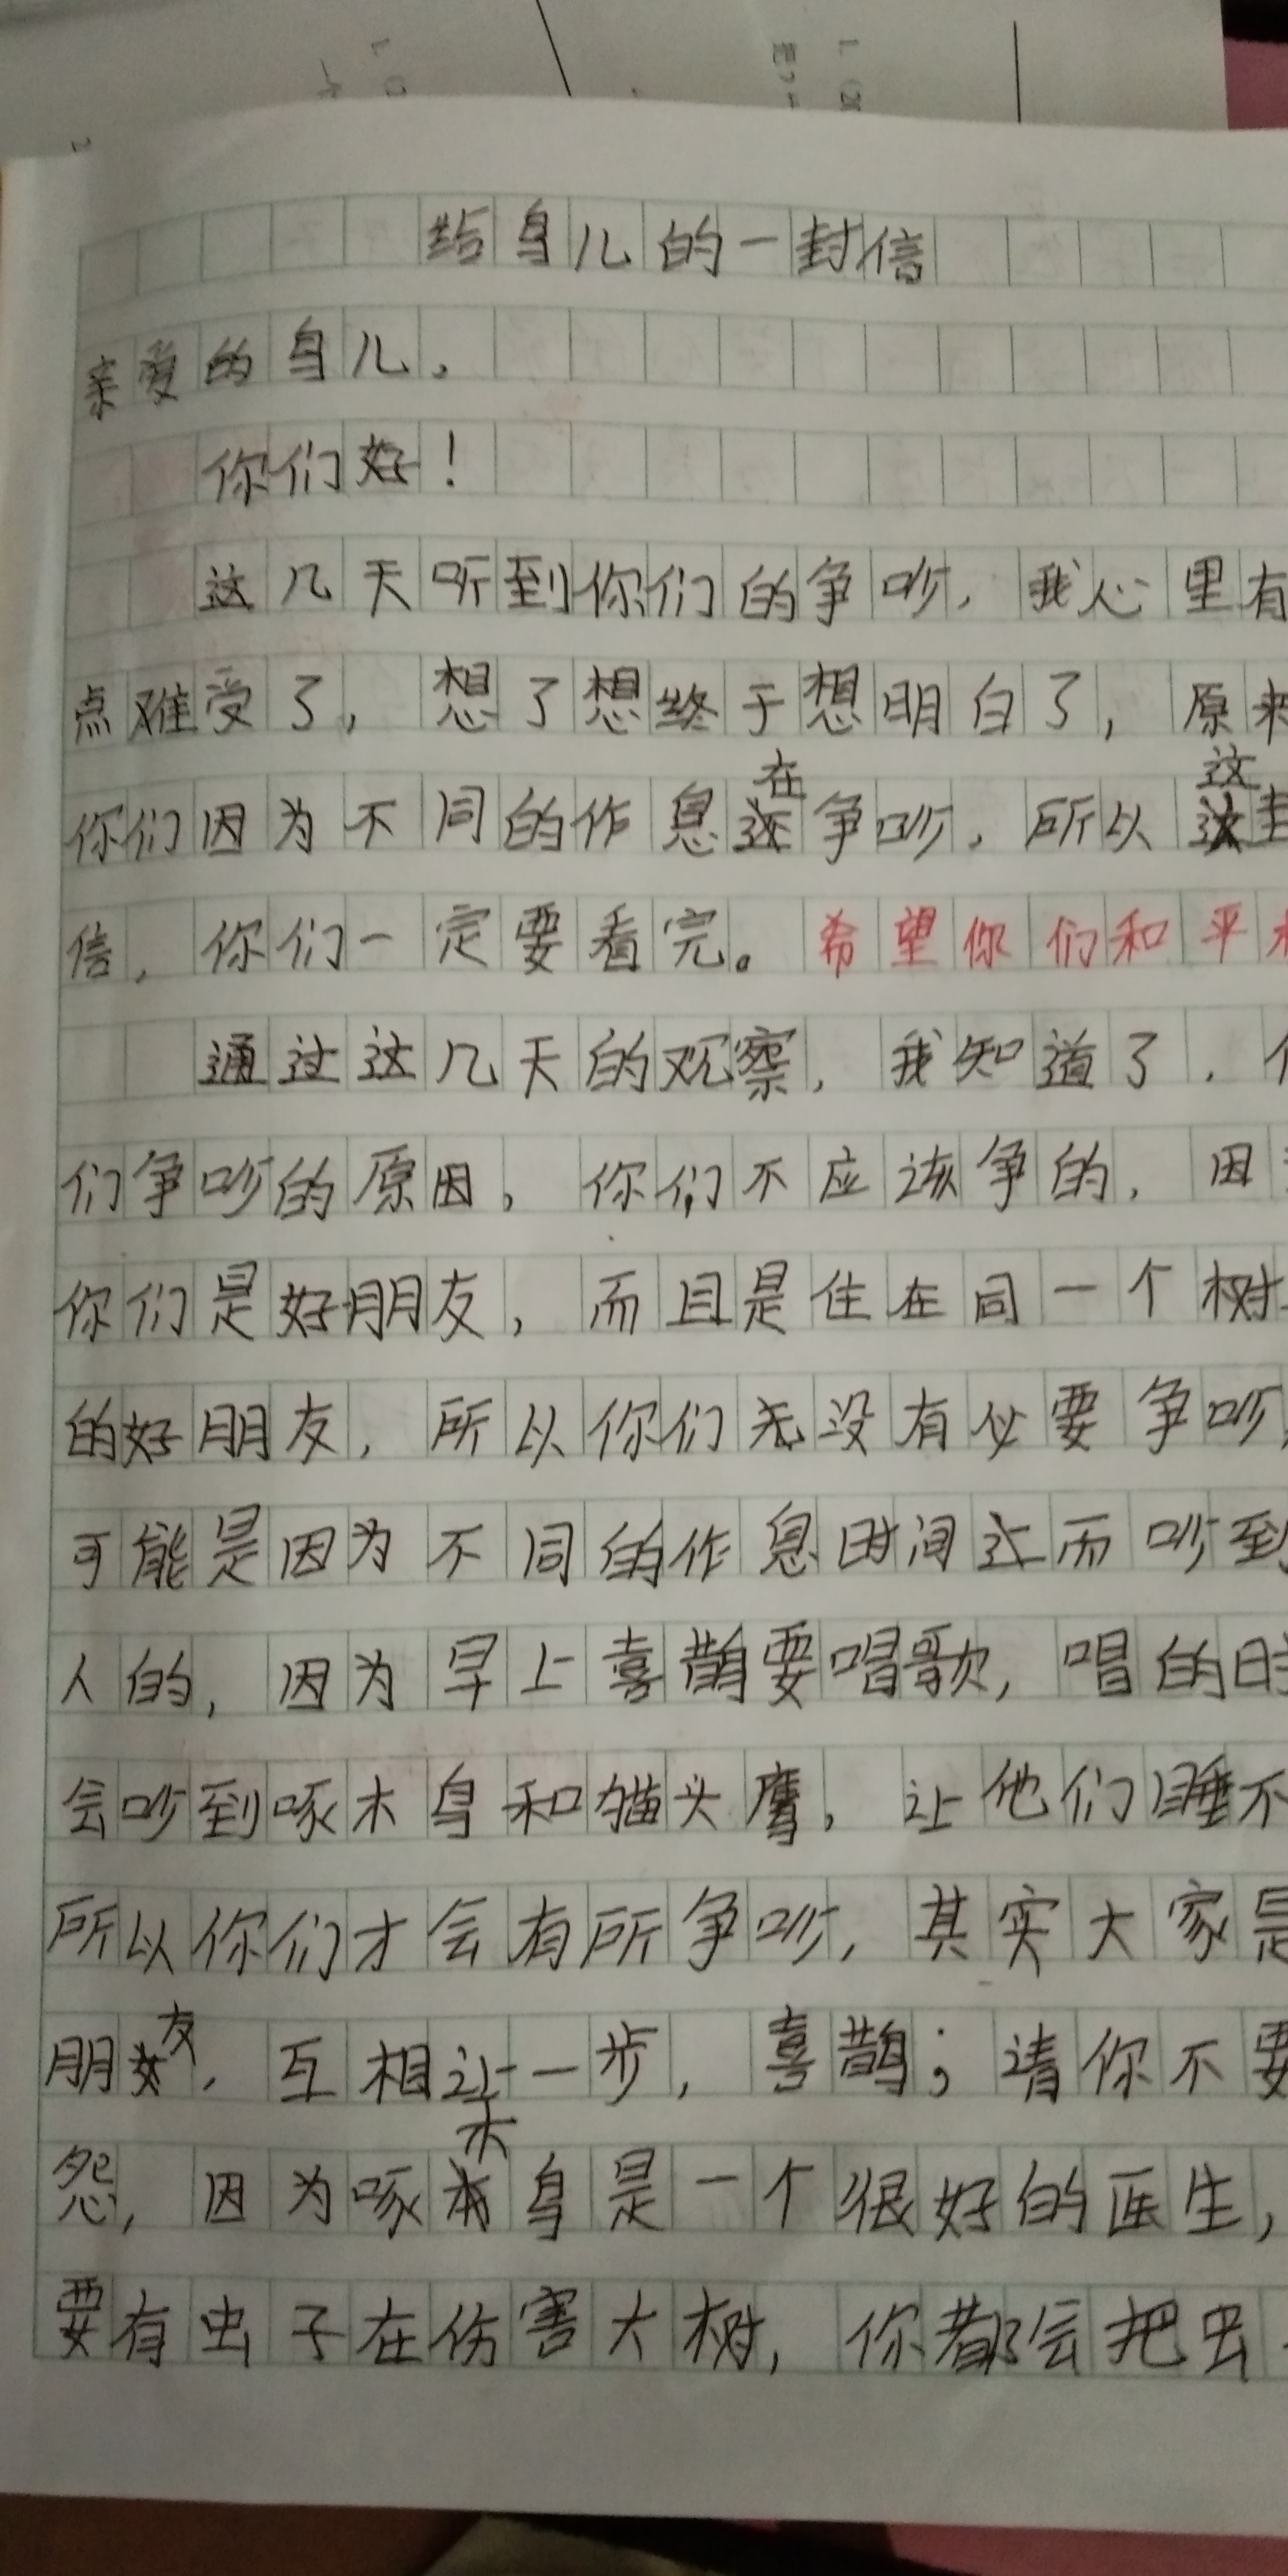 给鸟儿的一封信
亲爱的鸟儿,
你们好!
这几天听到你们的争吵,我心里有
点难受了,想了想终于想明白了,原来
你们因为不同的作息在争吵,所以这封
信,你们一定要看完。希望你们和平
通过这几天的观察,我知道了,
们争吵的原因,你们不应该争的,因
你们是好朋友,而且是住在同一个树
的好朋友,所以你们无没有必要争吵,
可能是因为不同的作息时间 而吵到
人的,因为早上喜鹊要唱歌,唱的时
会吵到啄木鸟和猫头鹰,让他们睡不
所以你们才会有所争吵,其实大家是
朋友,互相让一步,喜鹊;请你不要
怨,因为啄木鸟是一个很好的医生,
要有虫子在伤害大树,你都会把虫